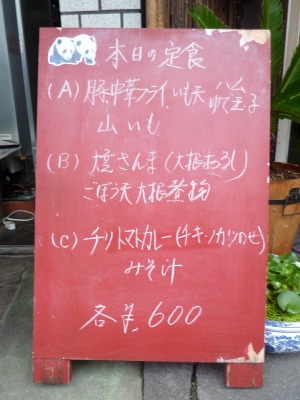 本日の定食
(A) 豚中華フライ、いも天 ゆで玉子
山いも
(B) 焼さんま(大根おろし)
ごぼう天 大根煮物
(C) チリトマトカレー(チキンカツのせ)
みそ汁
各¥600